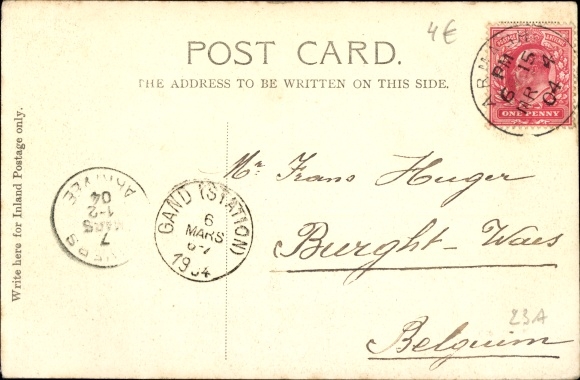 4€
POST CARD.
THE ADDRESS TO BE WRITTEN ON THIS SIDE.
Write here for Inland Postage only.
6 15 PM
MR 4
04
ONE PENNY
ANVERS
7
MARS
1-2
04
ARRIVÉE
GAND (STATION)
6
MARS
6-7
1904
Mr Frans Huger
Burght-Waes
Belguim
23A